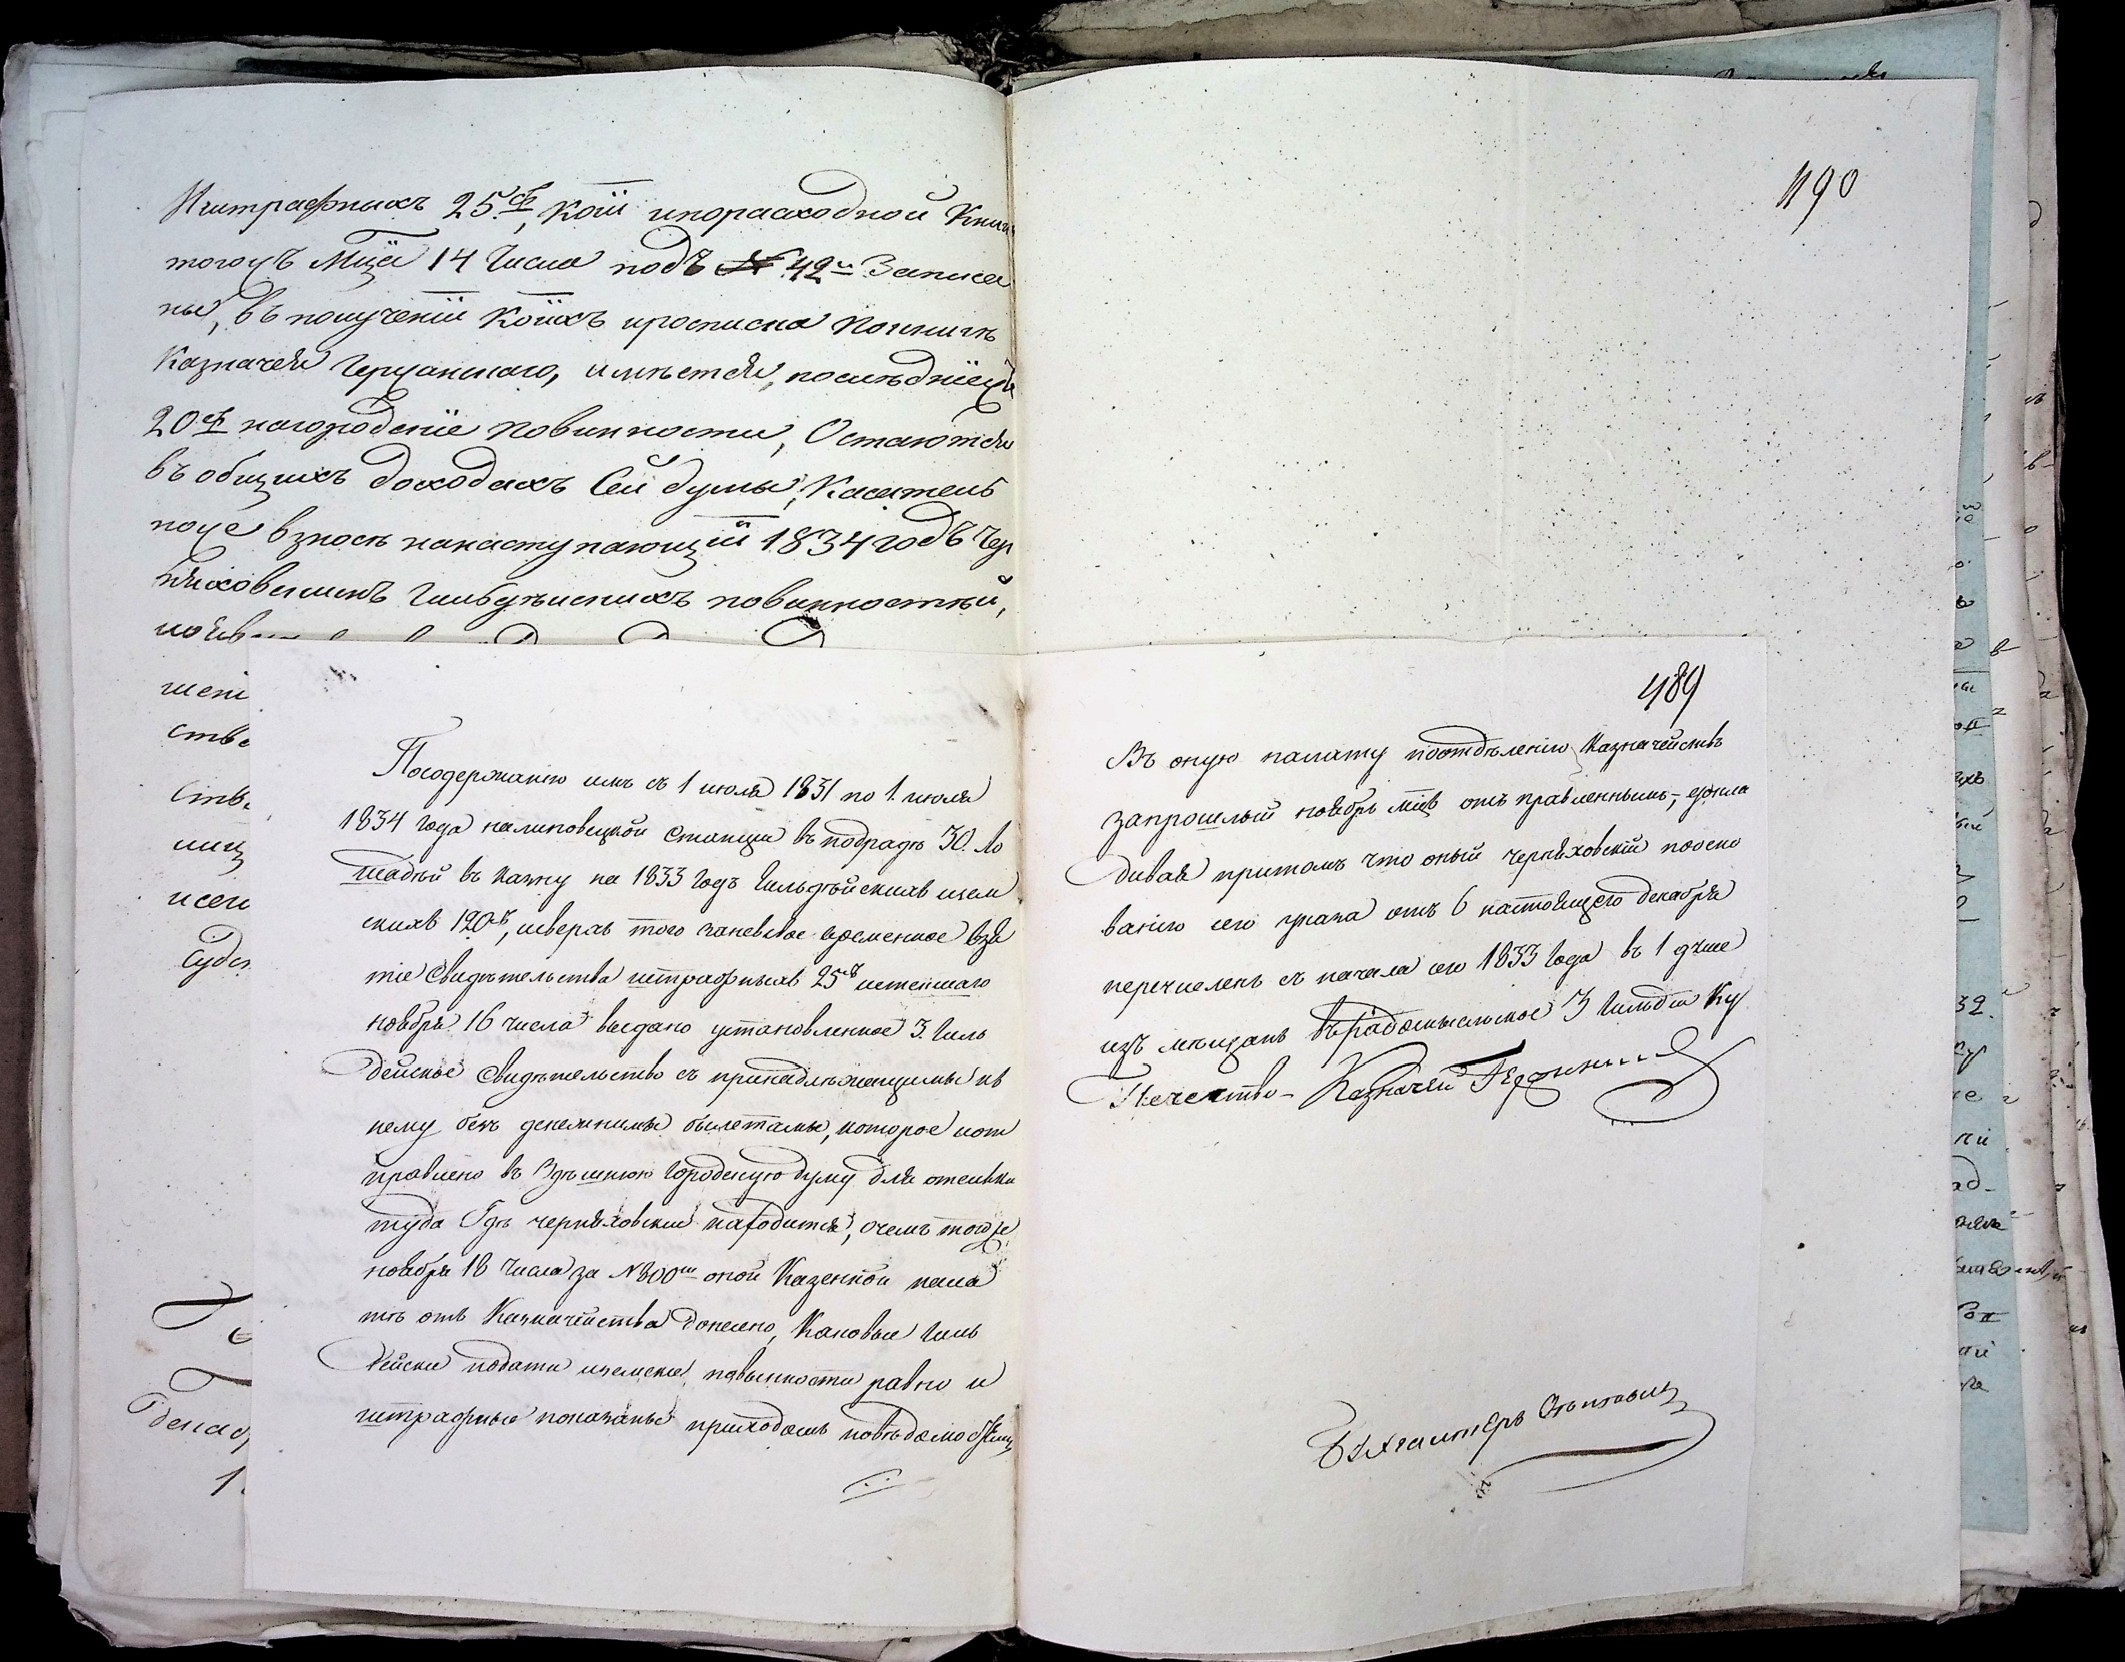 490
Иштрафныхъ 25 р, кои ипорасходной Книг
тогожъ Мца 14 Числа подъ № 42м Записа
ны, въ полученіи Коихъ росписка Покниги
Казначея имѣется, последніежъ
20 р нагородскіе повинности, Остаются
въ общихъ доходахъ Сей думы, Касатель
ноже взноса нанаступающій 1834 годъ Чер
няховскимъ Гильдѣискихъ повинностей,
шені
ство
Ство
лищ
исем
Судов
декаб
1
489
Посодержанію имъ съ 1 июля 1831 по 1. июля
1834 года Станции въ подрядъ 30. ло
шадей въ казну на 1833 годъ Гильдѣйскихъ изем
скихъ 120 р, исверхъ того заневзятое временное взя
тіе Свидѣтельства штрафныхъ 25 р истекшаго
ноября 16 числа выдано установленное 3. Гиль
дейское Свидѣтельство съ принадлежащимы къ
нему безъ денежнымы билетамы, которое иот
правлено въ Здѣшнюю Городскую думу для отсылки
туда Гдѣ черняховский находится, очемъ тогоже
ноября 18 Числа за №800м оной Казенной пала
тѣ отъ Казначейства донесено, Каковые Гиль
дейские подати иземские повинности равно и
штрафные показаны приходомъ повѣдомости
Въ оную палату поотдѣленію Казначействъ
запрошлый ноябрь мцъ отъ правленнымъ, докла
дывая притомъ что оный черняховский поосно
ванію сего указа отъ 6 настоящего декабря
перечисленъ съ начала сего 1833 Года въ 1 душе
изъ мещанъ въ радомысльское 3 Гильдіи Ку
Печество - Казначей
Бухгалтеръ